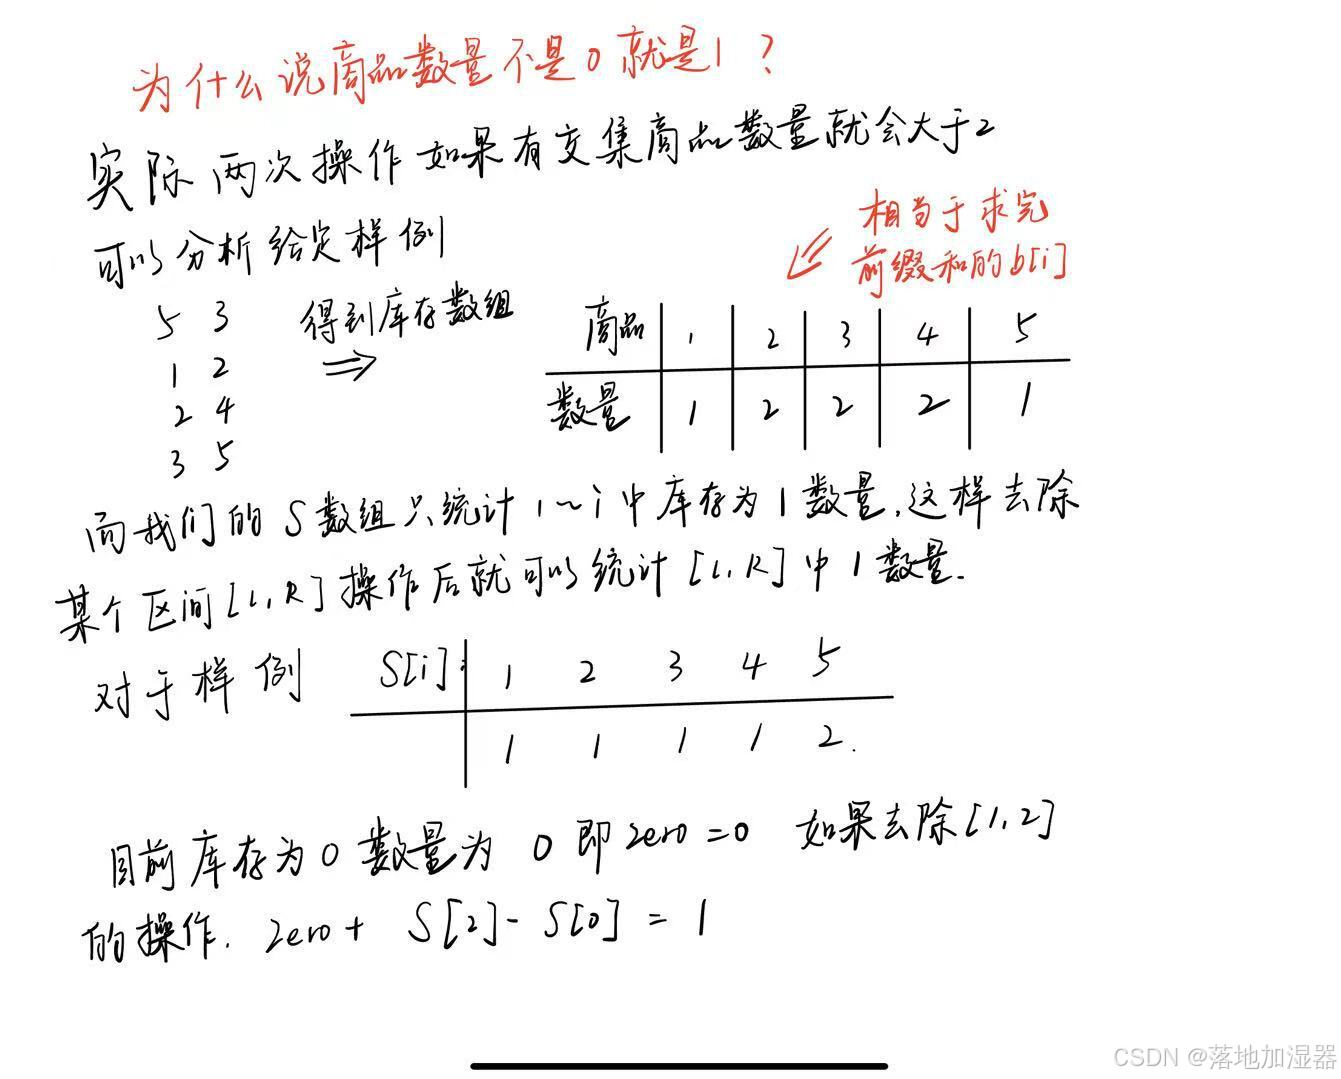 为什么说商品数量不是0就是1？
实际两次操作如果有交集商品数量就会大于2
可以分析给定样例
相当于求完
前缀和的b[i]
5 3
1 2
2 4
3 5
得到库存数组
⇒
商品 1 2 3 4 5
数量 1 2 2 2 1
而我们的S数组只统计1~i中库存为1数量,这样去除
某个区间[L,R]操作后就可以统计[L,R]中1数量.
对于样例
S[i] 1 2 3 4 5
1 1 1 1 2.
目前库存为0数量为0即zero=0 如果去除[1,2]
的操作. zero+ S[2]-S[0]=1
CSDN @落地加湿器